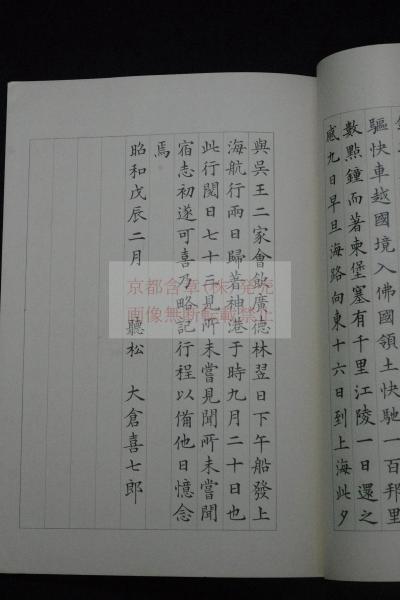 驅快車越國境入佛國領土快馳一百邦里
數點鐘而著柬堡塞有千里江陵一日還之
感九日早旦海路向東十六日到上海此夕
與吳王二家會飲廣德林翌日下午船發上
海航行兩日歸著神港于時九月二十日也
此行閱日七十三見所未嘗見聞所未嘗聞
宿志初遂可喜乃略記行程以備他日憶念
焉
昭和戊辰二月 聽松 大倉喜七郎
京都含章(株)発売
画像無断転載禁止